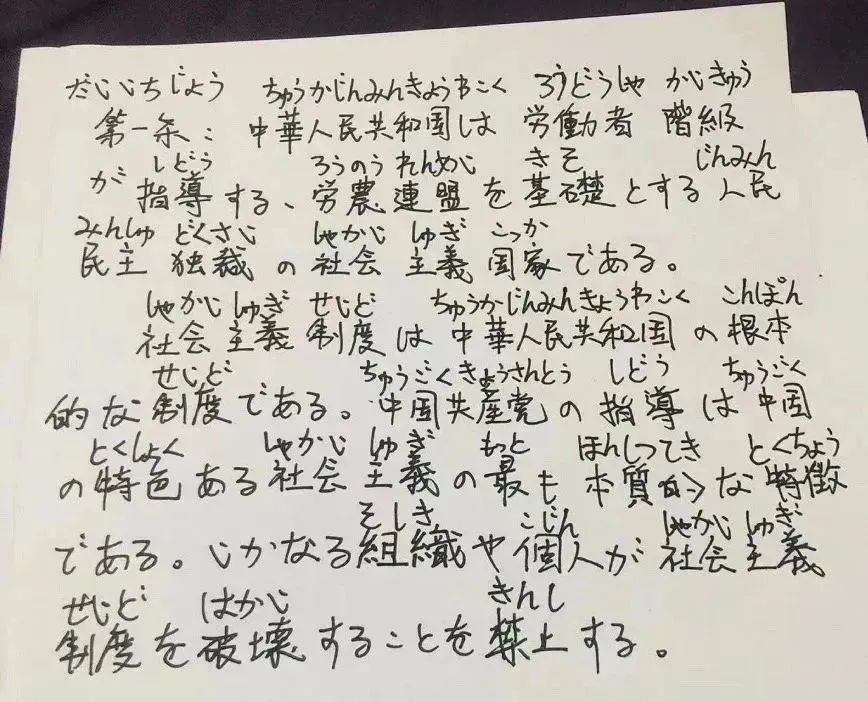 だいいちじょう ちゅうかじんみんきょうわこく ろうどうしゃ かいきゅう
第一条：中華人民共和国は 労働者 階級
しどう ろうのう れんめい きそ じんみん
が 指導する、労農連盟を基礎とする人民
みんしゅ どくさい しゃかい しゅぎ こっか
民主 独裁 の 社会 主義国家である。
しゃかい しゅぎ せいど ちゅうかじんみんきょうわこく こんぽん
社会主義制度は 中華人民共和国 の 根本
せいど ちゅうごくきょうさんとう しどう ちゅうごく
的な制度である。中国共産党の 指導 は 中国
とくしょく しゃかい しゅぎ もっと ほんしつてき とくちょう
の特色ある社会主義の最も 本質的な特徴
そしき こじん しゃかい しゅぎ
である。いかなる組織や個人が 社会主義
せいど はかい きんし
制度を破壊することを禁止する。